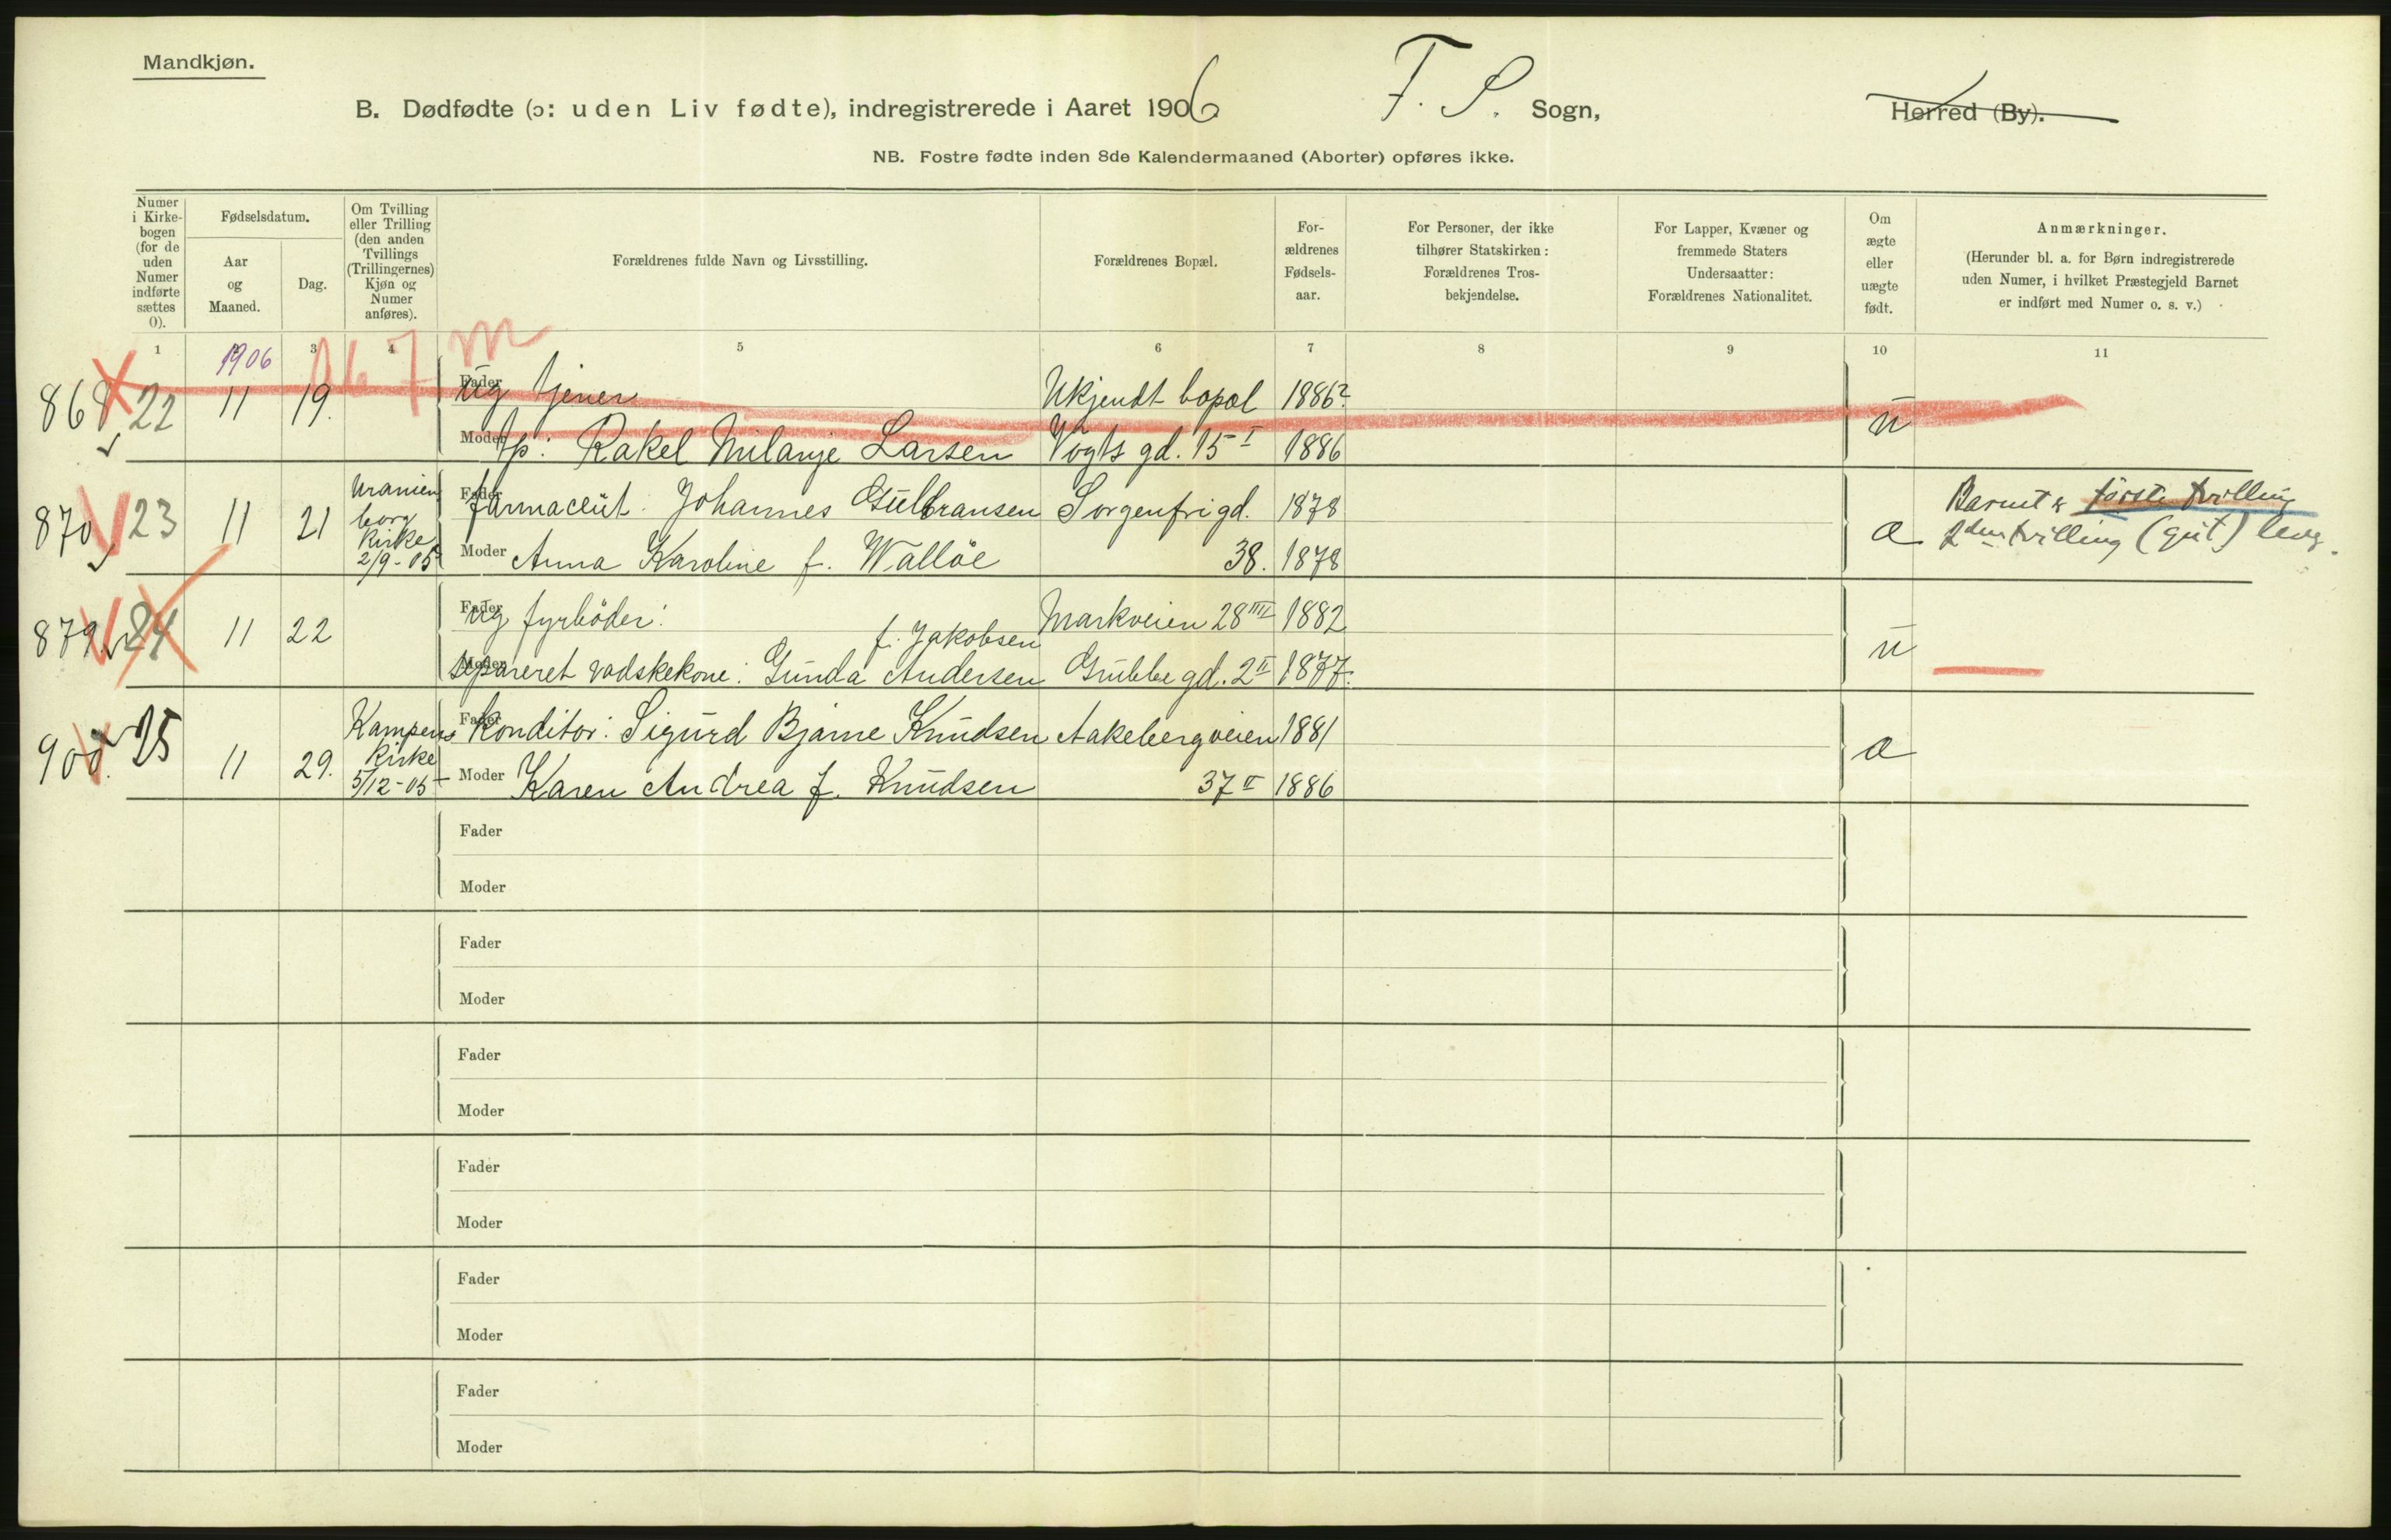 Mandkjøn.
B. Dødfødte (ɔ: uden Liv fødte), indregistrerede i Aaret 1906 F. S. Sogn, Herred (By).
NB. Fostre fødte inden 8de Kalendermaaned (Aborter) opføres ikke.
Numer i Kirkebogen (for de uden Numer indførte sættes 0).
Fødselsdatum.
Aar og Maaned.
Dag.
Om Tvilling eller Trilling (den anden Tvillings (Trillingernes) Kjøn og Numer anføres).
Forældrenes fulde Navn og Livsstilling.
Forældrenes Bopæl.
Forældrenes Fødselsaar.
For Personer, der ikke tilhører Statskirken: Forældrenes Trosbekjendelse.
For Lapper, Kvæner og fremmede Staters Undersaatter: Forældrenes Nationalitet.
Om ægte eller uægte født.
Anmærkninger.
(Herunder bl. a. for Børn indregistrerede uden Numer, i hvilket Præstegjeld Barnet er indført med Numer o. s. v.)
1 3 4 5 6 7 8 9 10 11
1906 167 m
868 22 11 19. Fader Ug tjener Ukjendt bopæl 1886?
Moder tp: Rakel Milanje Larsen Vogts gd. 15 I 1886 u
870 23 11 21 Uranienborg Kirke 2/9-05 Fader farmaceut: Johannes Gulbransen Sorgenfrigd. 1878
Moder Anna Karoline f. Walløe 38. 1878 æ
Barnet er første tvilling
2den tvilling (gut) lever.
879 24 11 22 Fader Ug fyrbøder: Markveien 28 IIII 1882
f. Jakobsen
Moder separeret vadskekone: Gunda Andersen Grubbegd. 2 II 1877. u
900. 25 11 29. Kampens Kirke 5/12-05 Fader Konditor: Sigurd Bjarne Knudsen Aakebergveien 1881
Moder Karen Andrea f. Knudsen 37 II 1886 æ
Fader
Moder
Fader
Moder
Fader
Moder
Fader
Moder
Fader
Moder
Fader
Moder